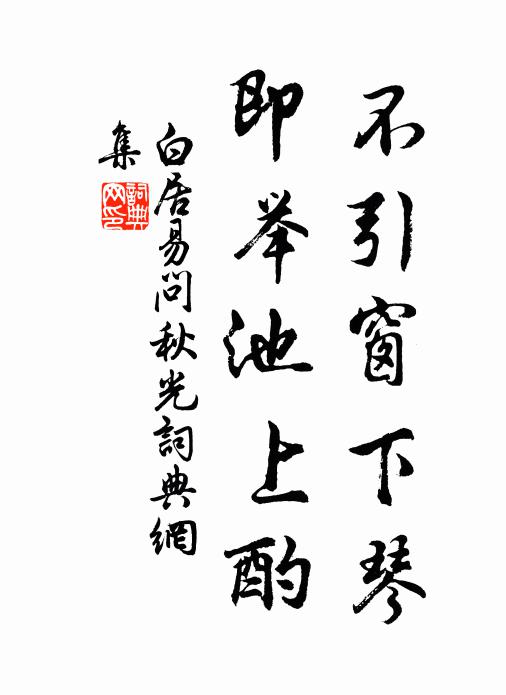 不引窗下琴
即举池上酌
白居易问秋光词典網
集
詞典
网印